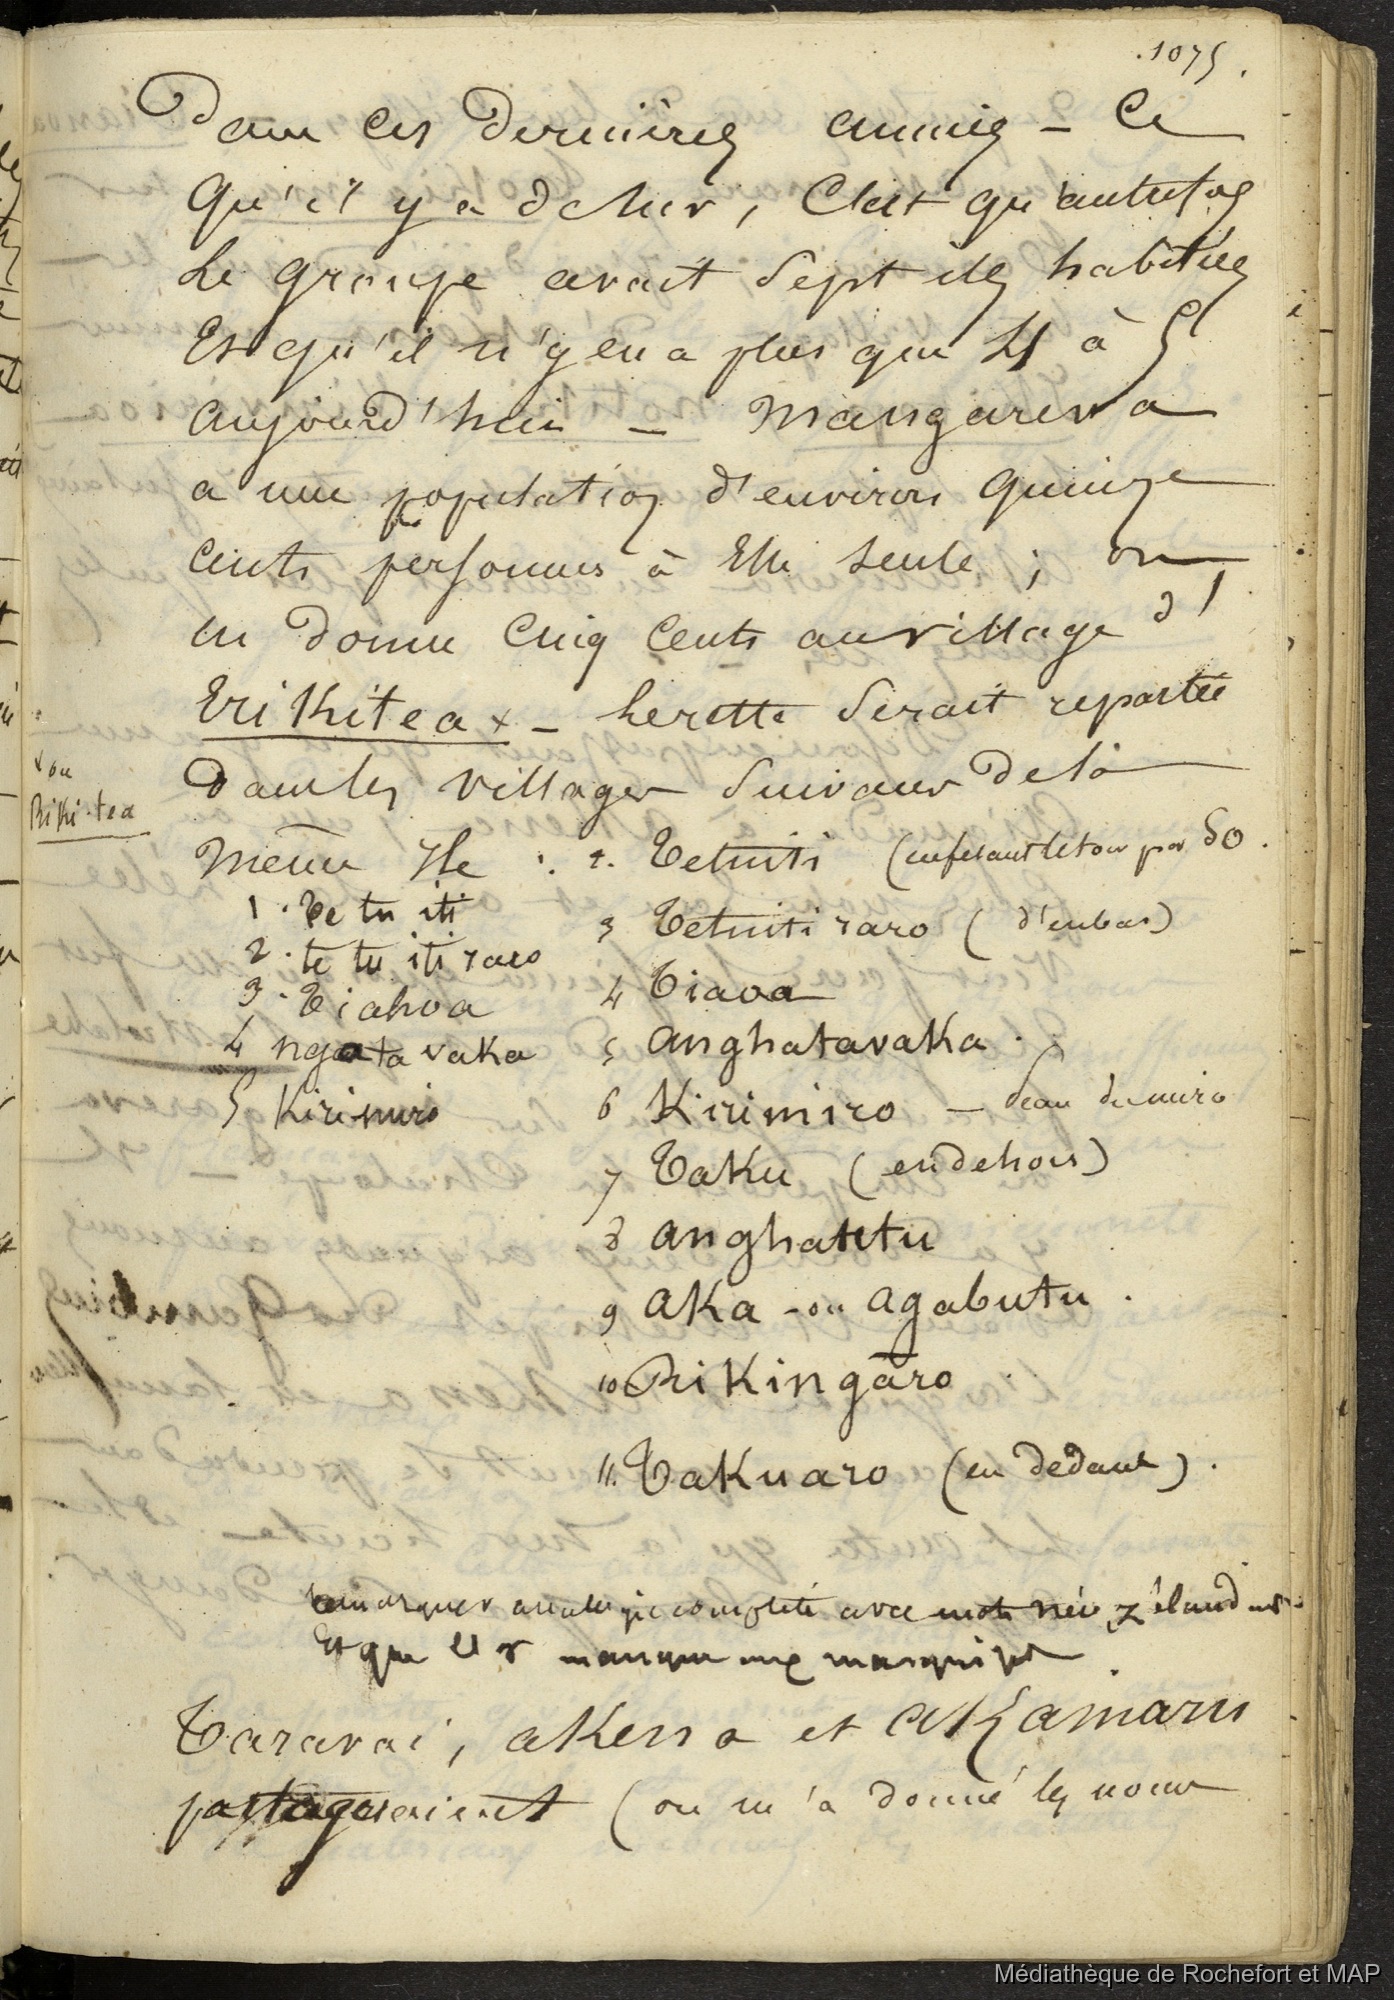 .1075.
Dans ces dernières années – Ce
qu'il y a de sûr, C'est qu'autrefois
Le groupe avait Sept iles habitées
Et qu'il n'y en a plus que 4 à 5
aujourd'hui – Mangareva
a une population d'environ quinze
cents personnes à Elle seule ; on
en donne Cinq Cents au village d'
Erikitea x – le reste Serait repartie
x ou
Riki-tea
Dans les villages Suivans De la
même Ile : 2. Tetuiti (en fesant le tour par SO.
1. te tu iti
2. te tu iti raro
3. Tiahoa
4 ngatavaka
5 Kirimiro
3 Tetuiti raro ( d'en bas)
4 Tiaoa
5 anghatavaka.
6 Kirimiro – Peau de miro
7 Taku (en dehors)
8 anghatetu
9 aka - ou agabutu.
10 Rikingaro
11. Takuaro (en dedans).
remarquer analogie complète avec mots néo zélandais.
Et que manque aux marquises.
Taravai, akena et akamaru
partageraient (on m'a donné les noms
Médiathèque de Rochefort et MAP